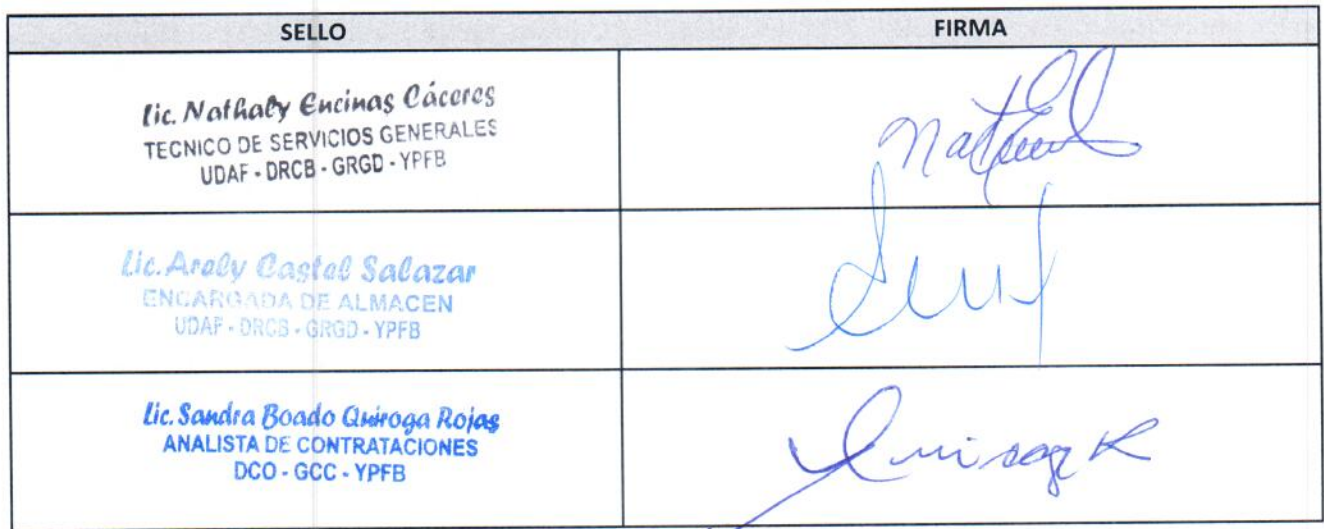 SELLO FIRMA
Lic. Nathaly Encinas Cáceres
TECNICO DE SERVICIOS GENERALES
UDAF - DRCB - GRGD - YPFB
Lic. Arely Castel Salazar
ENCARGADA DE ALMACEN
UDAF - DRCB - GRGD - YPFB
Lic. Sandra Boado Quiroga Rojas
ANALISTA DE CONTRATACIONES
DCO - GCC - YPFB